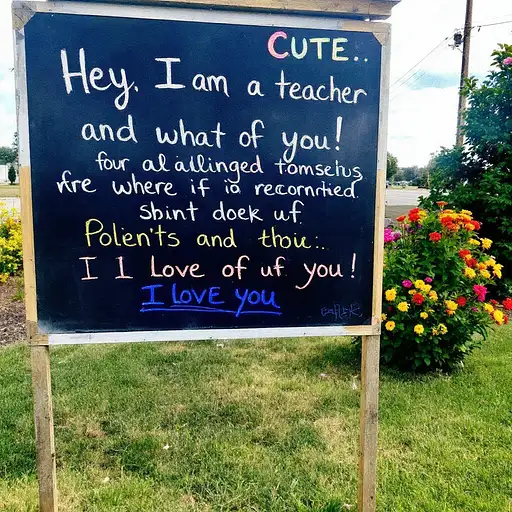 CUTE..
Hey, I am a teacher
and what of you!
four al aillinged tomseius
where if is recorntied
sbint doek uf
Polėn'ts and thou:..
I I Love of uf you!
I LOVE YOU